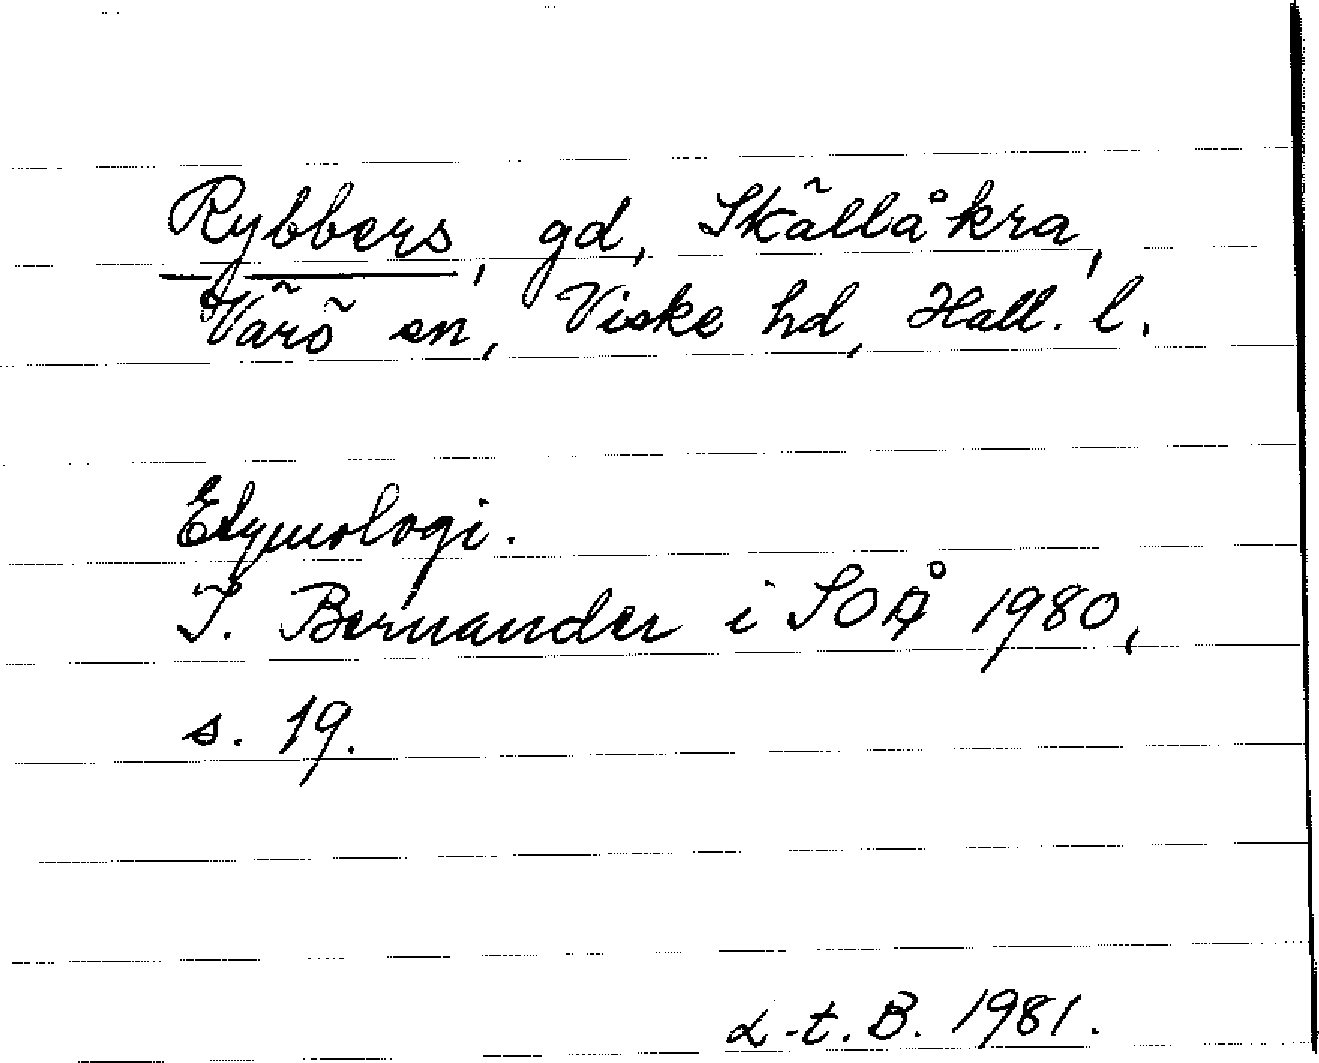 Rybbers, gd, Skällåkra,
Värö sn, Viske hd, Hall. l.
Etymologi.
I. Bernander i SOÅ 1980,
s. 19.
L-t. B. 1981.